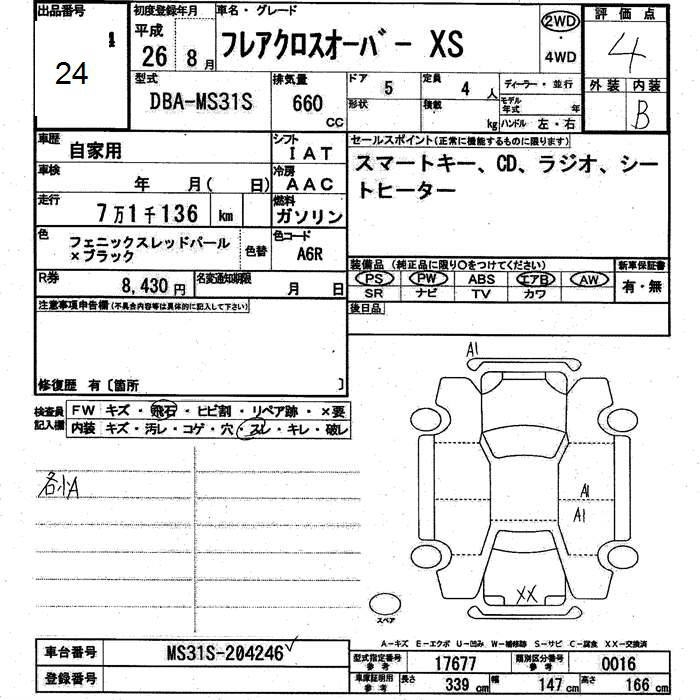 出品番号 初度登録年月 車名・グレード 評価点
1 平成 2WD
24 26 8月 フレアクロスオーバー XS ・ 4
4WD
型式 排気量 ドア 5 定員 4人 ディーラー・並行 外装 内装
DBA-MS31S 660 形状 積載 モデル年式 年 B
CC kg ハンドル 左・右
車歴 自家用 シフト IAT セールスポイント(正常に機能するものに限ります)
車検 年 月( 日) 冷房 AAC スマートキー、CD、ラジオ、シー
走行 7万1千136 km 燃料 ガソリン トヒーター
色 フェニックスレッドパール 色替 色コード
×ブラック A6R
装備品(純正品に限り○をつけてください) 新車保証書
R券 8,430円 名変通知期限 月 日 PS PW ABS エアB AW 有・無
SR ナビ TV カワ
注意事項申告欄(不具合内容等は具体的に記入して下さい) 後日品
修復歴 有〔箇所 〕
A1
検査員 FW キズ・飛石・ヒビ割・リペア跡・×要
記入欄 内装 キズ・汚レ・コゲ・穴・スレ・キレ・破レ
各小A A1
A1
XX
スペア
A-キズ E-エクボ U-凹み W-補修跡 S-サビ C-腐食 XX-交換済
車台番号 MS31S-204246 型式指定番号 参考 17677 類別区分番号 参考 0016
登録番号 車庫証明用 参考 長さ 339cm 幅 147cm 高さ 166cm